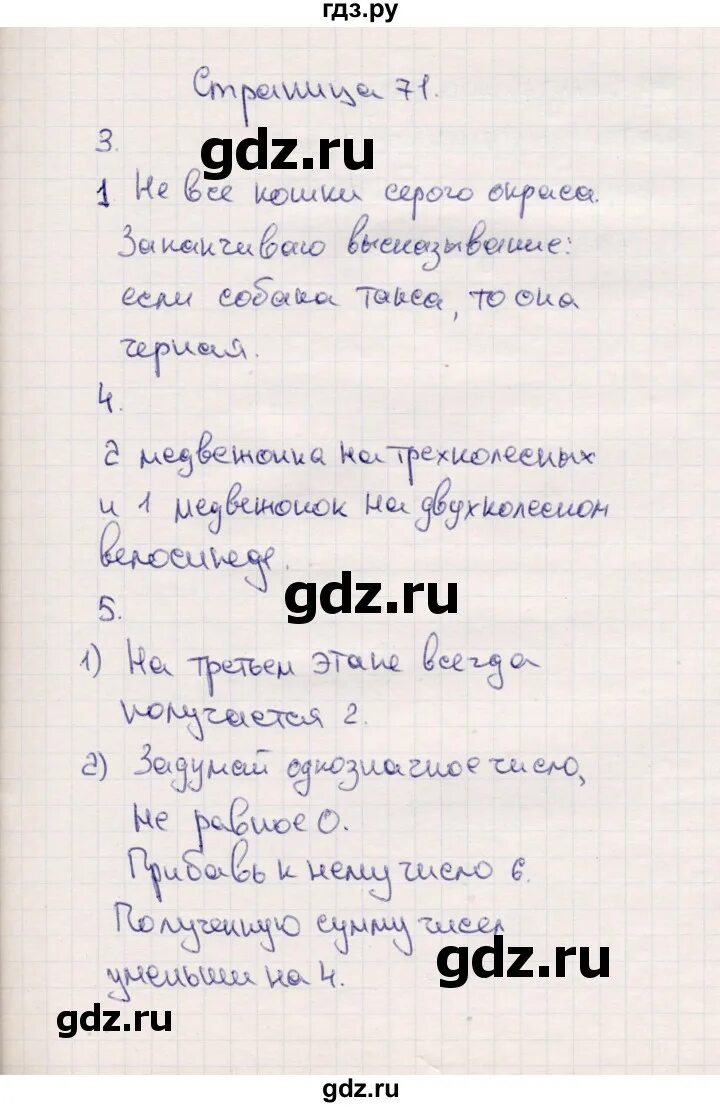 гдз.ру
Страница 71.
3.
gdz.ru
1 Не все кошки серого окраса.
Заканчиваю высказывание:
если собака такса, то она
черная.
4.
2 медвежонка на трехколесных
и 1 медвежонок на двухколесном
велосипеде.
gdz.ru
5.
1) На третьем этапе всегда
получается 2.
2) Задумай однозначное число,
не равное 0.
Прибавь к нему число 6.
Полученную сумму чисел
уменьши на 4.
gdz.ru
gdz.ru
gdz.ru